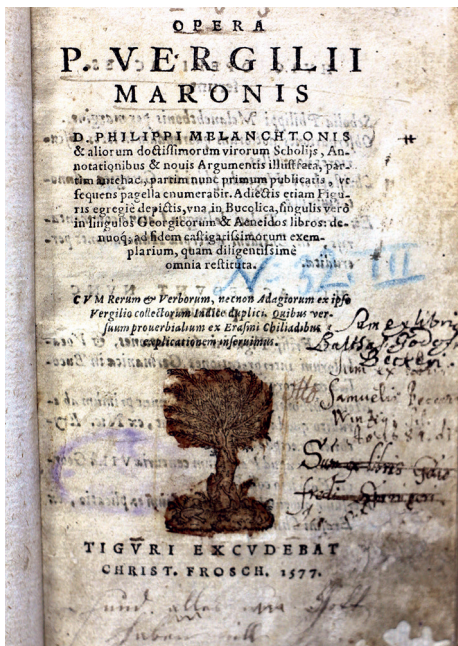 OPERA
P. VERGILII
MARONIS
D. PHILIPPI MELANCHTONIS
& aliorum doctissimorum virorum Scholijs, An-
notationibus & nouis Argumentis illustrata, par-
tim antehac, partim nunc primum publicatis, vt
sequens pagella enumerabit. Adiectis etiam Figu-
ris egregiè depictis, vna in Bucolica, singulis verò
in singulos Georgicorum & Aeneidos libros: de-
nuoq; ad fidem castigatissimorum exem-
plarium, quam diligentissimè
omnia restituta.
CVM Rerum & Verborum, necnon Adagiorum ex ipso
Vergilio collectorum Indice duplici. Quibus ver-
suum prouerbialium ex Erasmi Chiliadibus
explicationem inseruimus.
Sum ex libris
Balthas. Godof.
Beckeri.
Sum ex
Samuelis
Sum ex libris
TIGVRI EXCVDEBAT
CHRIST. FROSCH. 1577.
und alles Gott
haben will